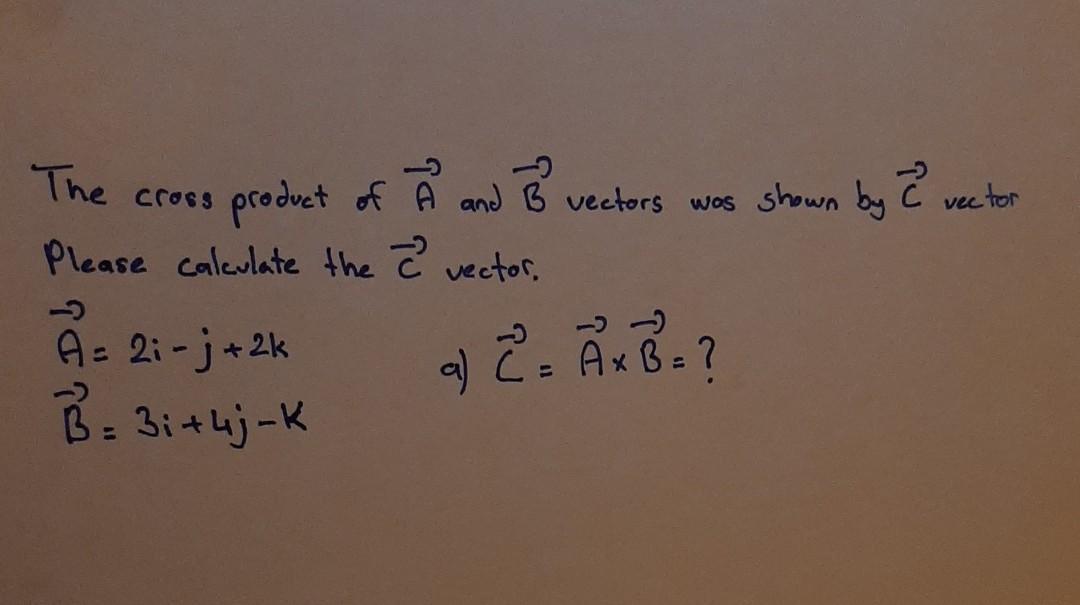 The cross product of A⃗ and B⃗ vectors was shown by C⃗ vector
Please calculate the C⃗ vector.
A⃗ = 2i - j + 2k
B⃗ = 3i + 4j - k
a) C⃗ = A⃗ x B⃗ = ?